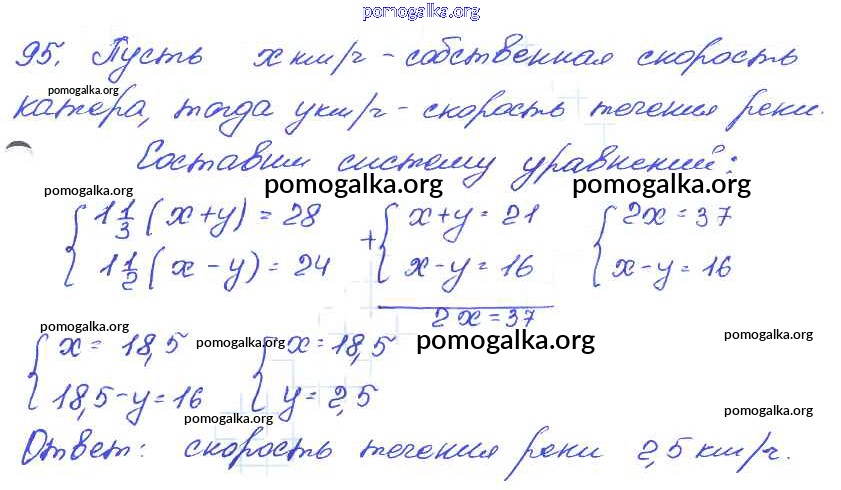 pomogalka.org
95. Пусть x км/ч - собственная скорость
pomogalka.org
катера, тогда y км/ч - скорость течения реки.
Составим систему уравнений:
pomogalka.org pomogalka.org pomogalka.org
{ 1 1/3 (x+y) = 28 + { x+y = 21 { 2x = 37
{ 1 1/2 (x-y) = 24 { x-y = 16 { x-y = 16
2x = 37
pomogalka.org pomogalka.org pomogalka.org pomogalka.org
{ x = 18,5 { x = 18,5
{ 18,5-y = 16 { y = 2,5
pomogalka.org pomogalka.org
Ответ: скорость течения реки 2,5 км/ч.
pomogalka.org